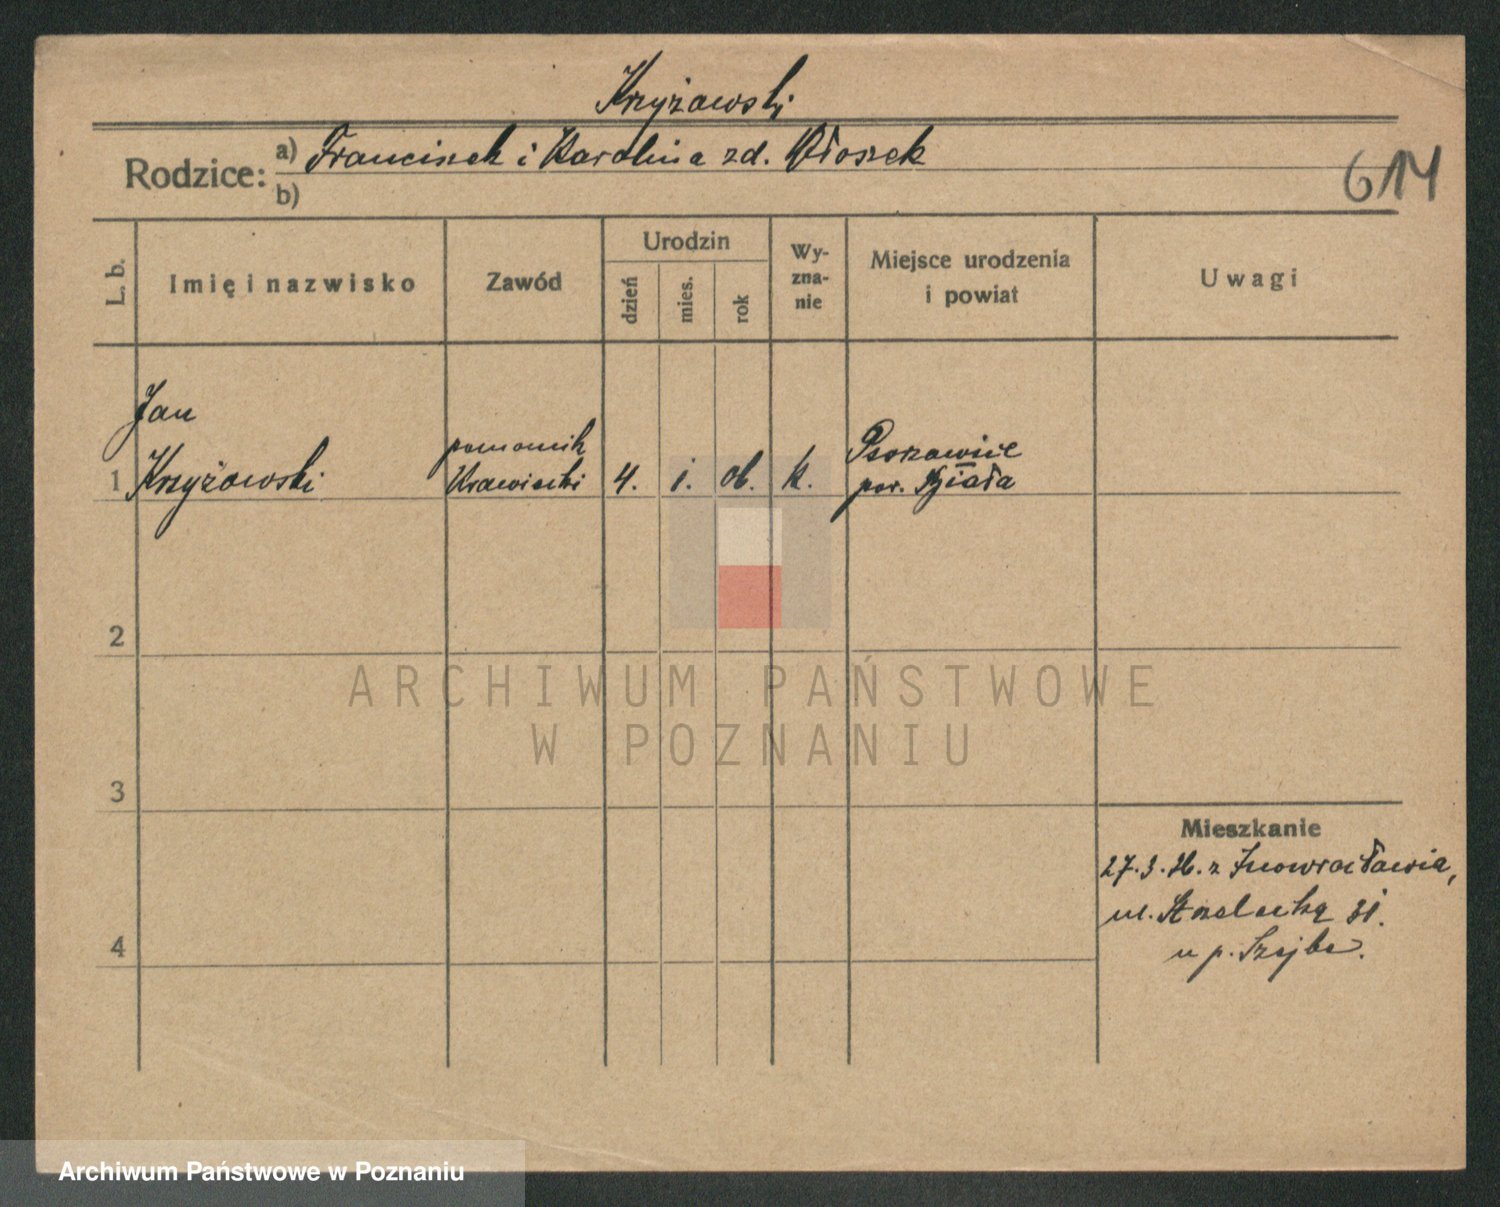 Krzyżowski
Rodzice: a) Franciszek i Karolina zd. Włoszek
b)
614
L. b.
Imię i nazwisko
Zawód
Urodzin
dzień
mies.
rok
Wy-
zna-
nie
Miejsce urodzenia
i powiat
Uwagi
Jan
1 Krzyżowski
pomocnik
krawiecki
4. 1. 06. k.
pow. Biała
2
3
4
ARCHIWUM PAŃSTWOWE
W POZNANIU
Mieszkanie
27.3.36. z Inowrocławia,
ul. Strzelecka 31.
u p. Szejbe.
Archiwum Państwowe w Poznaniu